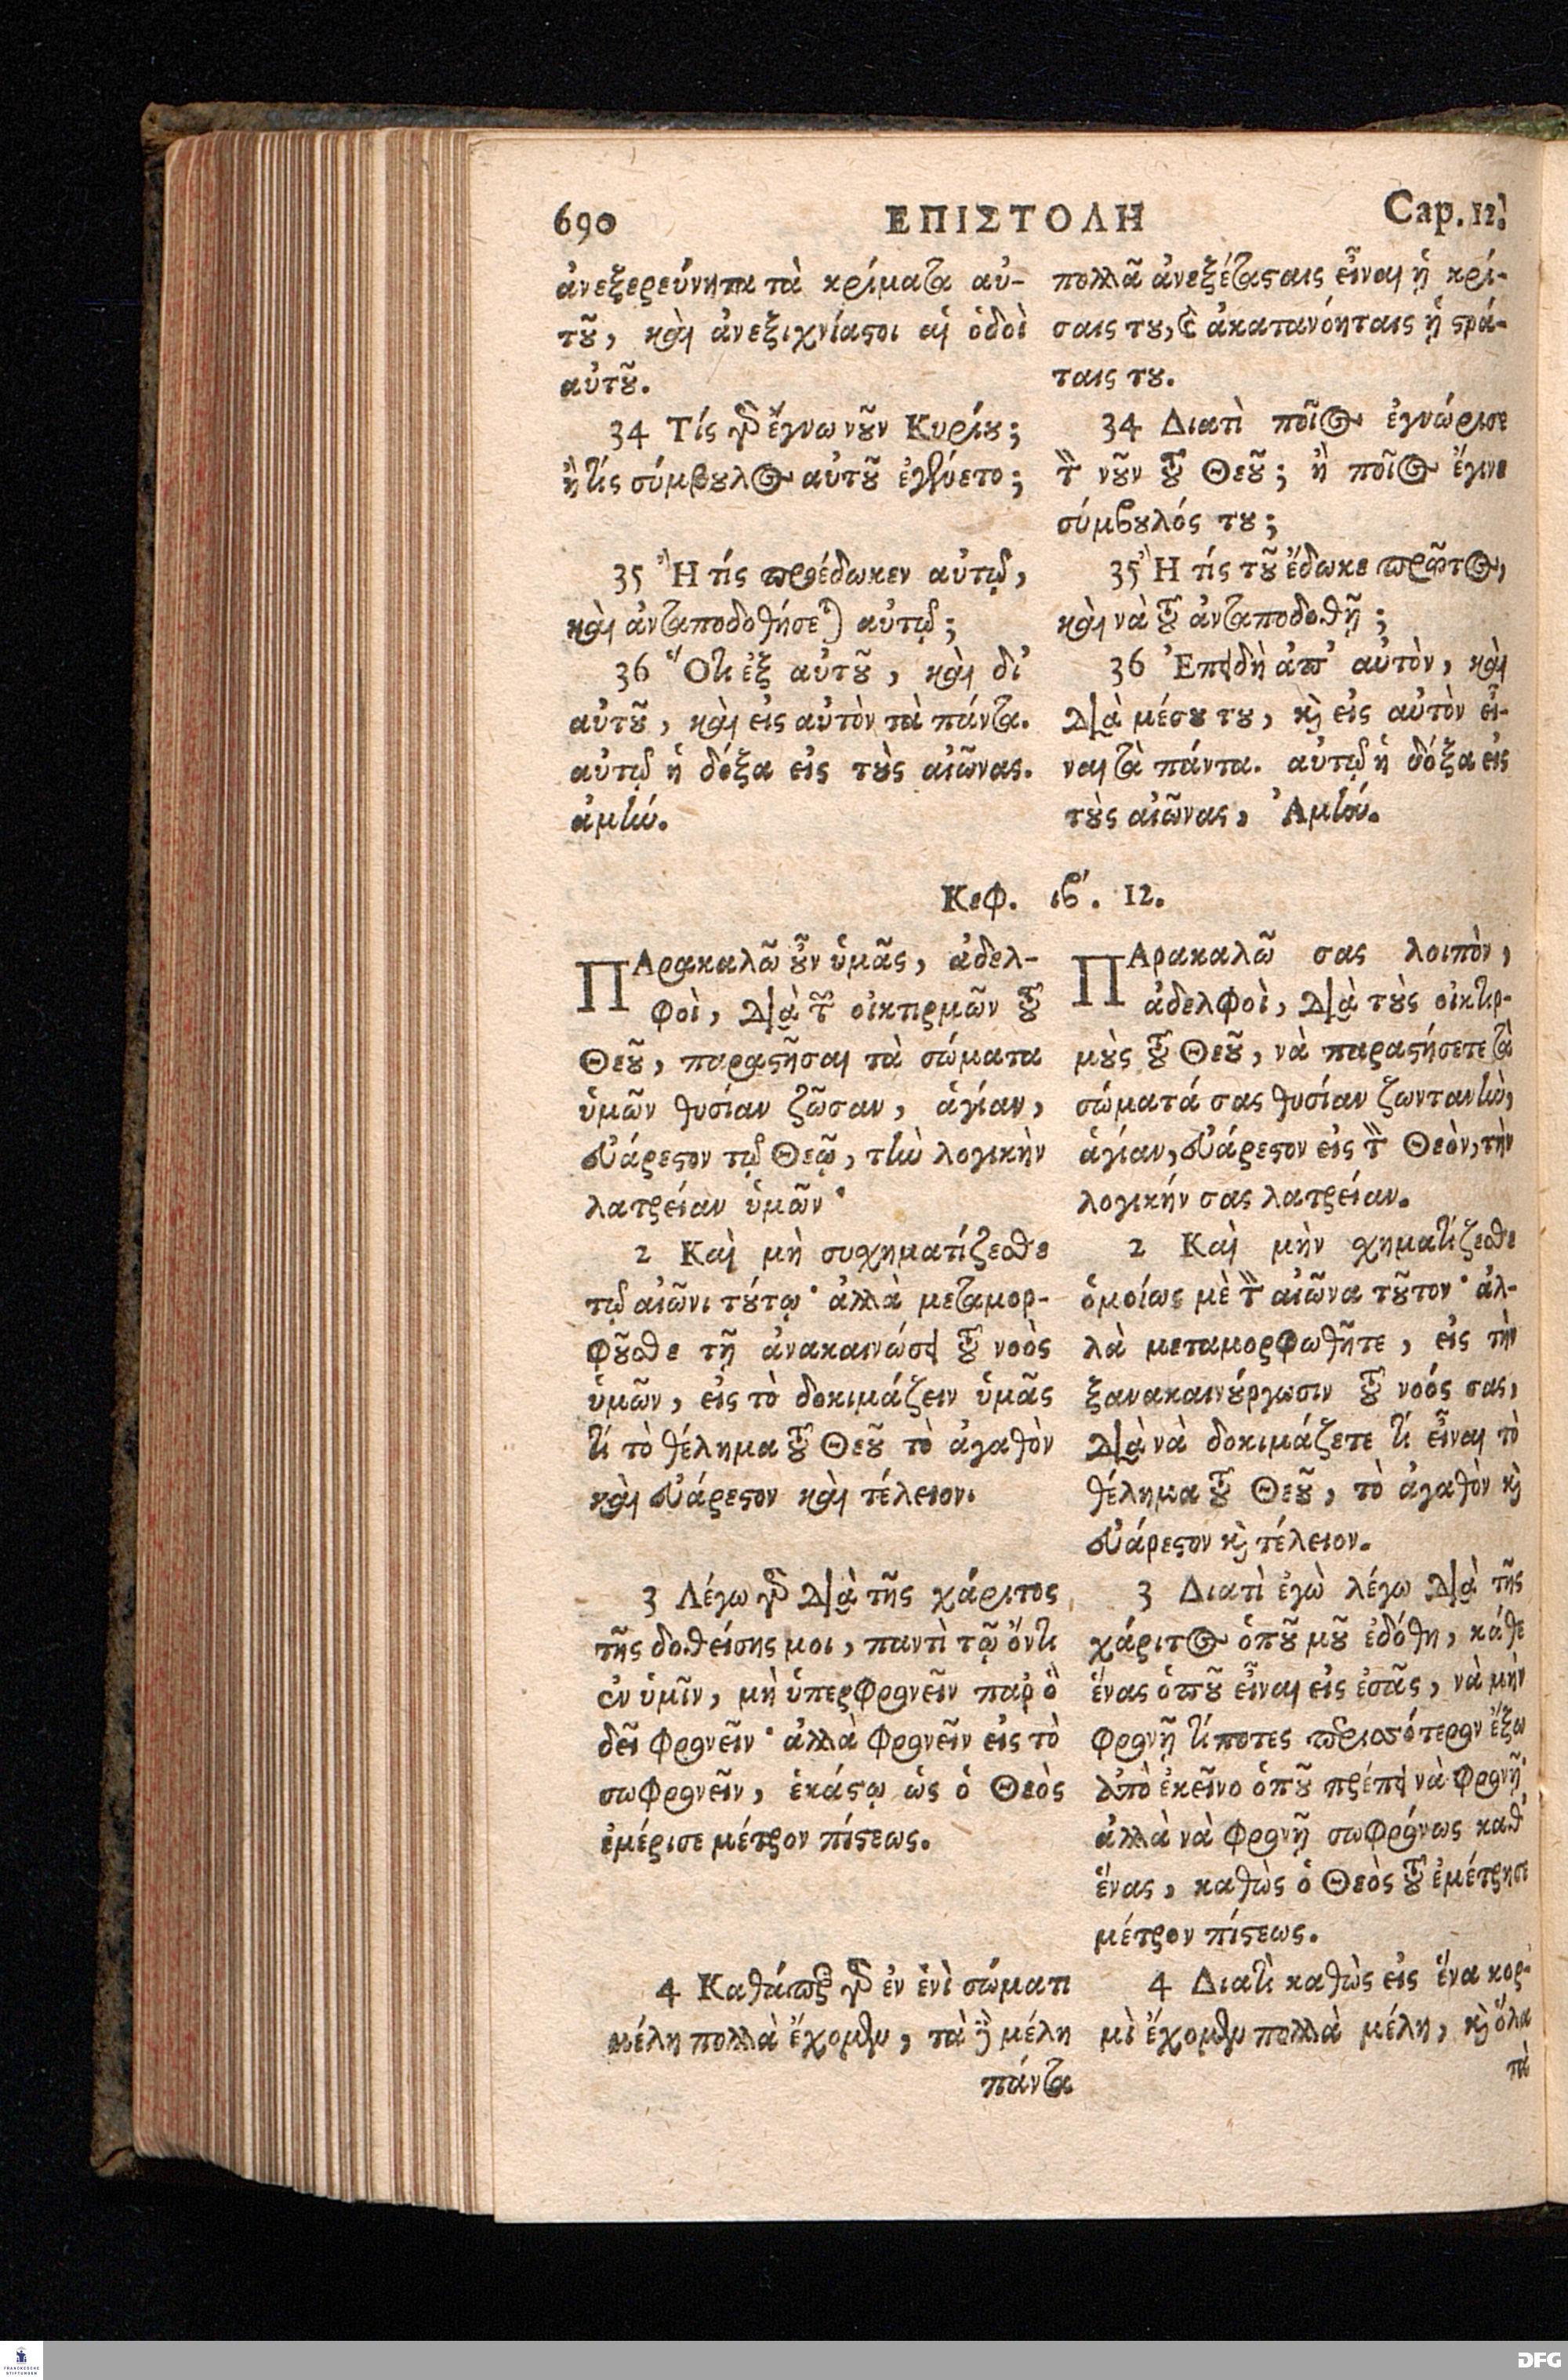 690 ΕΠΙΣΤΟΛΗ Cap. 12.
ἀνεξερεύνητα τὰ κρίματα αὐ-
τοῦ, καὶ ἀνεξιχνίαστοι αἱ ὁδοὶ
αὐτοῦ.
34 Τίς γὸ ἔγνω νοῦν Κυρίου;
ἢ τίς σύμβουλος αὐτοῦ ἐγένετο;
35 Ἢ τίς προέδωκεν αὐτῷ,
καὶ ἀνταποδοθήσεται αὐτῷ;
36 Ὅτι ἐξ αὐτοῦ, καὶ δι'
αὐτοῦ, καὶ εἰς αὐτὸν τὰ πάντα.
αὐτῷ ἡ δόξα εἰς τοὺς αἰῶνας.
ἀμήν.
πολλὰ ἀνεξέτασταις εἶναι ἡ κρί-
σαις του, καὶ ἀκατανόηταις ἡ στρά-
ταις του.
34 Διατὶ ποῖος ἐγνώρισε
τὸν νοῦν τοῦ Θεοῦ; ἢ ποῖος ἔγινε
σύμβουλός του;
35 Ἢ τίς τοῦ ἔδωκε πρῶτος,
καὶ νὰ τοῦ ἀνταποδοθῇ;
36 Ἐπειδὴ ἀπ' αὐτὸν, καὶ
διὰ μέσου του, καὶ εἰς αὐτὸν εἶ-
ναι τὰ πάντα. αὐτῷ ἡ δόξα εἰς
τοὺς αἰῶνας, Ἀμήν.
Κεφ. ιβ'. 12.
ΠΑρακαλῶ οὖν ὑμᾶς, ἀδελ-
φοὶ, διὰ τῶν οἰκτιρμῶν τοῦ
Θεοῦ, παραστῆσαι τὰ σώματα
ὑμῶν θυσίαν ζῶσαν, ἁγίαν,
εὐάρεστον τῷ Θεῷ, τὴν λογικὴν
λατρείαν ὑμῶν·
2 Καὶ μὴ συσχηματίζεσθε
τῷ αἰῶνι τούτῳ· ἀλλὰ μεταμορ-
φοῦσθε τῇ ἀνακαινώσει τοῦ νοὸς
ὑμῶν, εἰς τὸ δοκιμάζειν ὑμᾶς
τί τὸ θέλημα τοῦ Θεοῦ τὸ ἀγαθὸν
καὶ εὐάρεστον καὶ τέλειον.
3 Λέγω γὸ διὰ τῆς χάριτος
τῆς δοθείσης μοι, παντὶ τῷ ὄντι
ἐν ὑμῖν, μὴ ὑπερφρονεῖν παρ' ὃ
δεῖ φρονεῖν· ἀλλὰ φρονεῖν εἰς τὸ
σωφρονεῖν, ἑκάστῳ ὡς ὁ Θεὸς
ἐμέρισε μέτρον πίστεως.
4 Καθάπερ γὸ ἐν ἑνὶ σώματι
μέλη πολλὰ ἔχομεν, τὰ δὲ μέλη
πάντα
ΠΑρακαλῶ σας λοιπὸν,
ἀδελφοὶ, διὰ τοὺς οἰκτιρ-
μοὺς τοῦ Θεοῦ, νὰ παραστήσετε τὰ
σώματά σας θυσίαν ζωντανὴν,
ἁγίαν, εὐάρεστον εἰς τὸν Θεὸν, τὴν
λογικήν σας λατρείαν.
2 Καὶ μὴν σχηματίζεσθε
ὁμοίως μὲ τὸν αἰῶνα τοῦτον· ἀλ-
λὰ μεταμορφωθῆτε, εἰς τὴν
ξανακαινούργωσιν τοῦ νοός σας,
διὰ νὰ δοκιμάζετε τί εἶναι τὸ
θέλημα τοῦ Θεοῦ, τὸ ἀγαθὸν καὶ
εὐάρεστον καὶ τέλειον.
3 Διατὶ ἐγὼ λέγω διὰ τῆς
χάριτος ὁποῦ μοῦ ἐδόθη, κάθε
ἕνας ὁποῦ εἶναι εἰς ἐσᾶς, νὰ μὴν
φρονῇ τίποτες περισσότερον ἔξω
ἀπὸ ἐκεῖνο ὁποῦ πρέπει νὰ φρονῇ·
ἀλλὰ νὰ φρονῇ σωφρόνως καθ'
ἕνας, καθὼς ὁ Θεὸς τοῦ ἐμέτρησε
μέτρον πίστεως.
4 Διατὶ καθὼς εἰς ἕνα κορ-
μὶ ἔχομεν πολλὰ μέλη, καὶ ὅλα
τὰ
FRANCKESCHE STIFTUNGEN
DFG